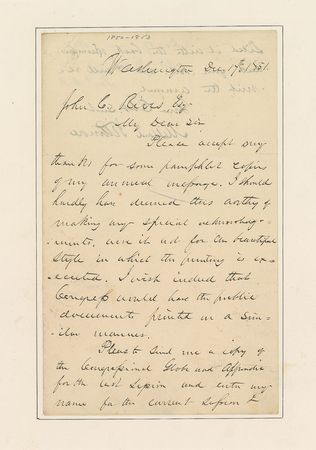 1850-1853
Washington Dec 17th 1851.
John C. Rives Esq
My Dear Sir
Please accept my
thanks for some pamphlet copies
of my annual message. I should
hardly have deemed this worthy of
making any special acknowledg-
ments, were it not for the beautiful
style in which the printing is ex-
ecuted. I wish indeed that
Congress would have the public
documents printed in a sim-
ilar manner.
Please to send me a copy of
the Congressional Globe and Appendix
for the last Session and enter my
name for the current Session &